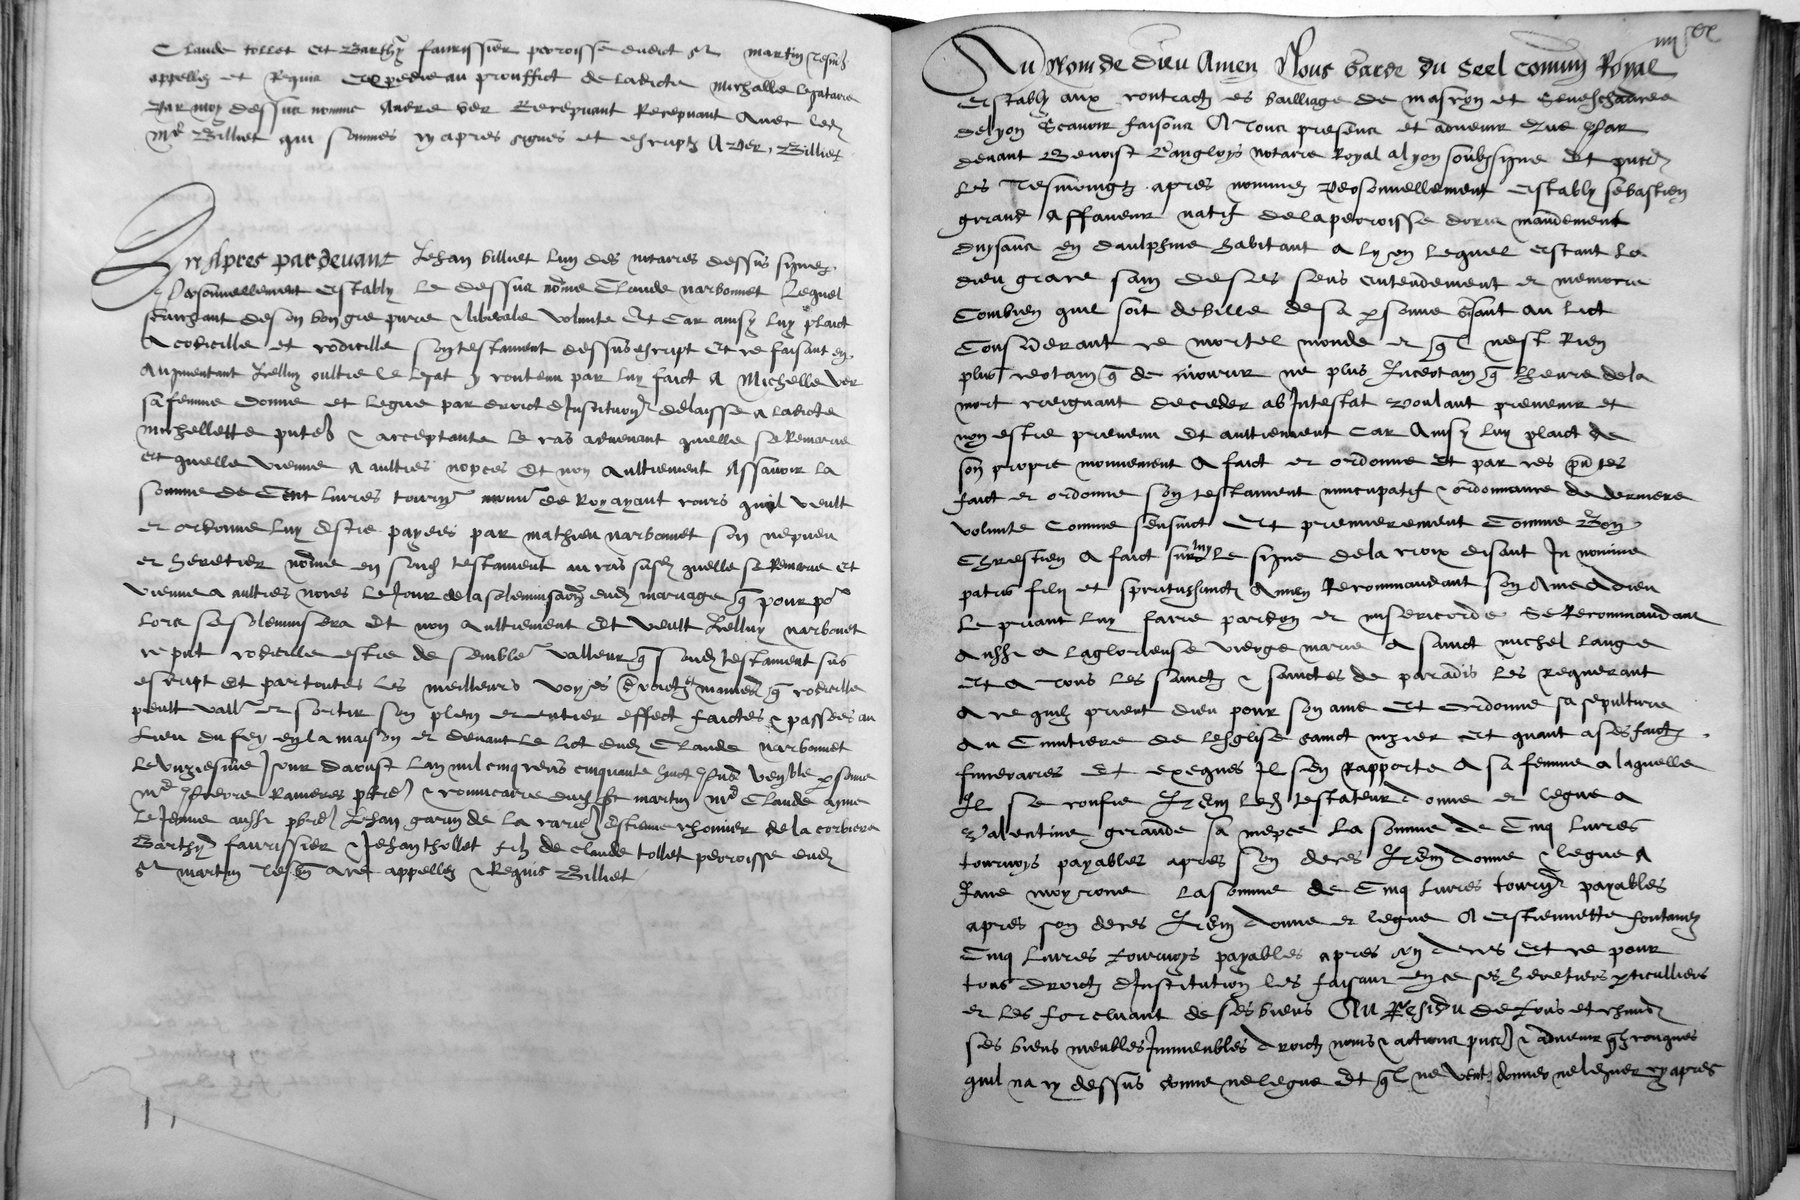 Claude tollet et Barthy faurissier perroisse dudict st martin tesmz
appellez et requis expedie au prouffict de ladicte michalle legataire
Par moy dessus nomme Andre ver Recepuant Recepuant Avec led
me Billiet qui sommes cy apres signes et escriptz A Ver, Billiet
Et Apres par devant Jehan billiet lun des notaires dessus signez
personnellement estably le dessus nomme Claude narbonnet Lequel
saichant de son bon gre pure & liberale volunte Et Car ainsy luy plaict
A codicille et codicille son testament dessus escript Et ce faisant en
Augmentant Icelluy oultre le legat y contenu par luy faict A Michelle ver
sa femme donne et legue par droict dInstitution delaisse a ladicte
michellette pnte & acceptante le cas advenant quelle se Remarie
et quelle vienne A aultres nopces Et non Aultrement Assavoir la
somme de Cent livres tourn monn de Roy ayant cours quil veult
et ordonne luy Estre payees par mathieu narbonnet son nepveu
et heretier nomme en sond testament au cas susd quelle se Remarie et
vienne a aultres noces le Jour de la solemnisaon dud mariage q pour
lors se solemnisera Et non Aultrement Et veult Icelluy narbonet
ce pnt codicille estre de semble valleur q sond testament sus
escript Et par toutes les meilleurs voyes droictz manieres q codicille
peult vall et sortir son plein et entier effect faictes & passees au
lieu du fey en la maison et devant le lict dud Claude narbonnet
le unziesme Jour daoust lan mil cinq cens cinquante huict psns venble psonne
mre pierre Rameres pbre & convicaire dud st martin mre Claude ayme
le Jeune aussi pbre Jehan garin de la estienne thonier de la corbiere
Barthy faurissier & Jehan thollet filz de claude tollet perroisse dud
st martin tesm ace appellez & Requis Billiet
Au Nom de Dieu Amen Nous Garde du Seel comun Royal
estably aux contractz es bailliage de mascon et Seneschaucee
de lyon Scavoir faisons A Tous presens et advenir Que Par
devant Benoist Langloys notaire Royal a lyon soubzsigne Et pntz
les Tesmoingz apres nommez personnellement estably sebastien
girand Affaneur natif de la perroisse doris mandement
duysans en daulphine habitant A lyon lequel estant la
dieu grace sain de ses sens entendement et memoire
Combien quil soit debille de sa psonne gisant au lict
Considerant ce mortel monde et ql nest Rien
plus certain q de mourir ne plus Incertain q lheure de la
mort creignant deceder ab Intestat voulant prevenir et
non estre prevenu Et aultrement Car Ainsy luy plaict de
son propre mouvement A faict et ordonne Et par ces pntes
faict et ordonne son testament nuncupatif & ordonnance de derniere
volunte Comme sensuict Et premierement Comme Bon
Chrestien A faict sur luy le signe de la croix disant In nomine
patris filij et spiritus sancti Amen Recommandant son Ame A dieu
le priant luy faire pardon et misericorde Se Recommandant
Aussi A la glorieuse vierge marie A sainct michel lange
et A Tous les sainctz & sainctes de paradis les Requerant
A ce quilz prient dieu pour son ame Et Ordonne sa sepulture
Au Cimitiere de leglise sainct nizier Et quant a ses faictz
funeraires Et exeques Il sen Rapporte A sa femme a laquelle
Il se confie Item led testateur donne et legue A
Valentine girande sa niepce La somme de Cinq livres
tournoys payables apres son deces Item donne & legue A
Jane moyrone la somme de Cinq livres tourn payables
apres son deces Item donne et legue A estiennette fontanez
Cinq livres tournoys payables apres son deces Et ce pour
tous droictz dInstitution les faisant en ce ses heretiers pticulliers
et les forcluant de ses biens Au Residu de Tous et chuns
ses biens meubles Immeubles droictz noms & actions pntz & advenir qlzconques
quil na cy dessus donne ne legue Et ql ne veult donner ne leguer cy apres